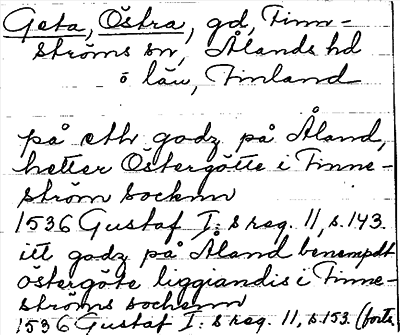 Geta, Östra, gd, Finn-
ströms sn, Ålands hd
o län, Finland
på eth godz på Åland,
hetter Östergötte i Finne-
ström sockenn
1536 Gustaf I:s reg. 11, s. 143.
itt godz på Åland benempdt
östergöte liggiandis i Finne-
ströms sochenn
1536 Gustaf I:s reg. 11, s. 153 (forts.